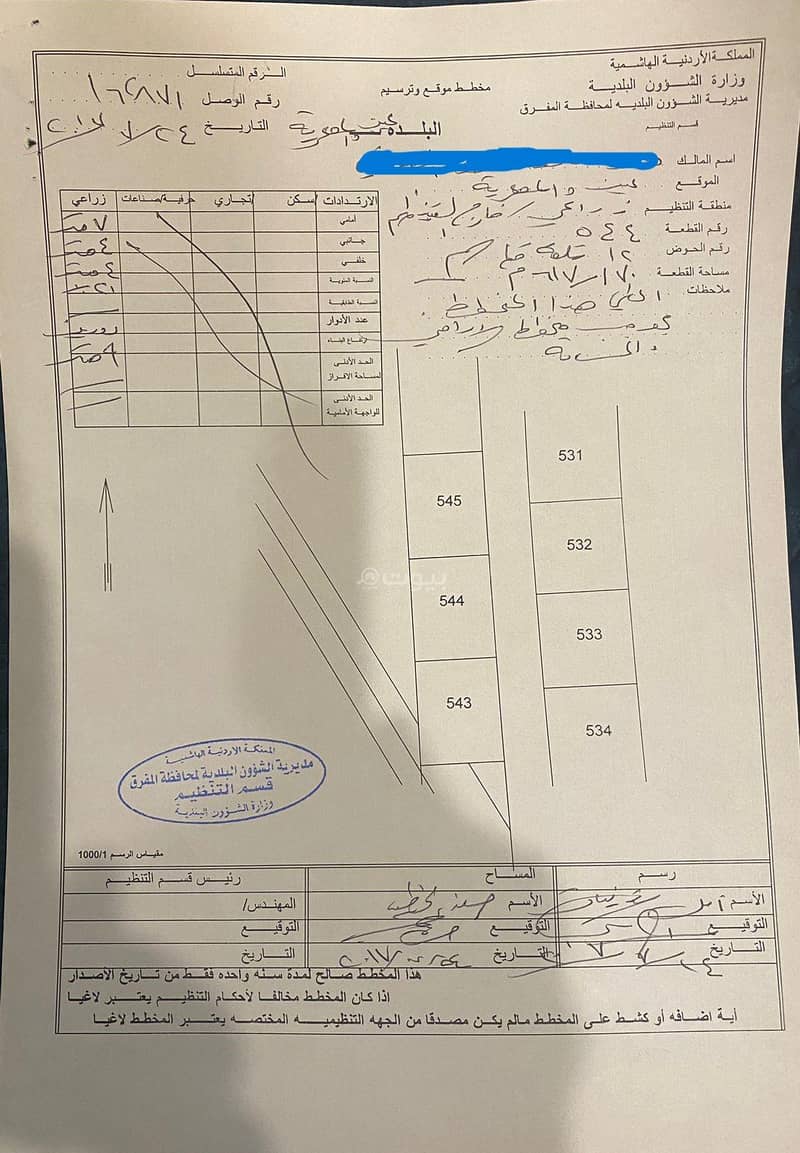 المملكة الأردنية الهاشمية
وزارة الشؤون البلدية
مديرية الشؤون البلديه لمحافظة المفرق
قسم التنظيم
مخطط موقع وترسيم
الرقم المتسلسل
رقم الوصل ١٦٢٨٧١
البلدة عين والمعمرية
التاريخ ٢٠١٧/٧/٢٤
اسم المالك
الموقع عين والمعمرية
منطقة التنظيم زراعي / خارج التنظيم
رقم القطعة ٥٤٤
رقم الحوض ١٢
مساحة القطعة ٦١٧/١٧٠ م
ملاحظات اعطي هذا المخطط
بموجب مخطط الاراضي
الارتدادات سكن تجاري حرفية/صناعات زراعي
أمامي ٧ متر
جانبي ٤ متر
خلفي ٤ متر
النسبة المئوية ٢١%
النسبة الطابقية
عدد الأدوار دورين
ارتفاع البناء ٨ متر
الحد الأدنى لمساحة الافراز
الحد الأدنى للواجهة الأمامية
531
545
532
544
533
543
534
بيوت
المملكة الاردنية الهاشمية
مديرية الشؤون البلدية لمحافظة المفرق
قسم التنظيم
وزارة الشؤون البلدية
مقياس الرسم 1000/1
رسم المساح رئيس قسم التنظيم
الأسم أمل الأسم المهندس/
التوقيع التوقيع التوقيع
التاريخ ٢٠١٧/٧/٢٤ التاريخ ٢٠١٧/٧/٢٤ التاريخ
هذا المخطط صالح لمدة سنه واحده فقط من تاريخ الأصدار
اذا كان المخطط مخالفا لأحكام التنظيم يعتبر لاغيا
أية اضافه أو كشط على المخطط مالم يكن مصدقا من الجهه التنظيميه المختصه يعتبر المخطط لاغيا